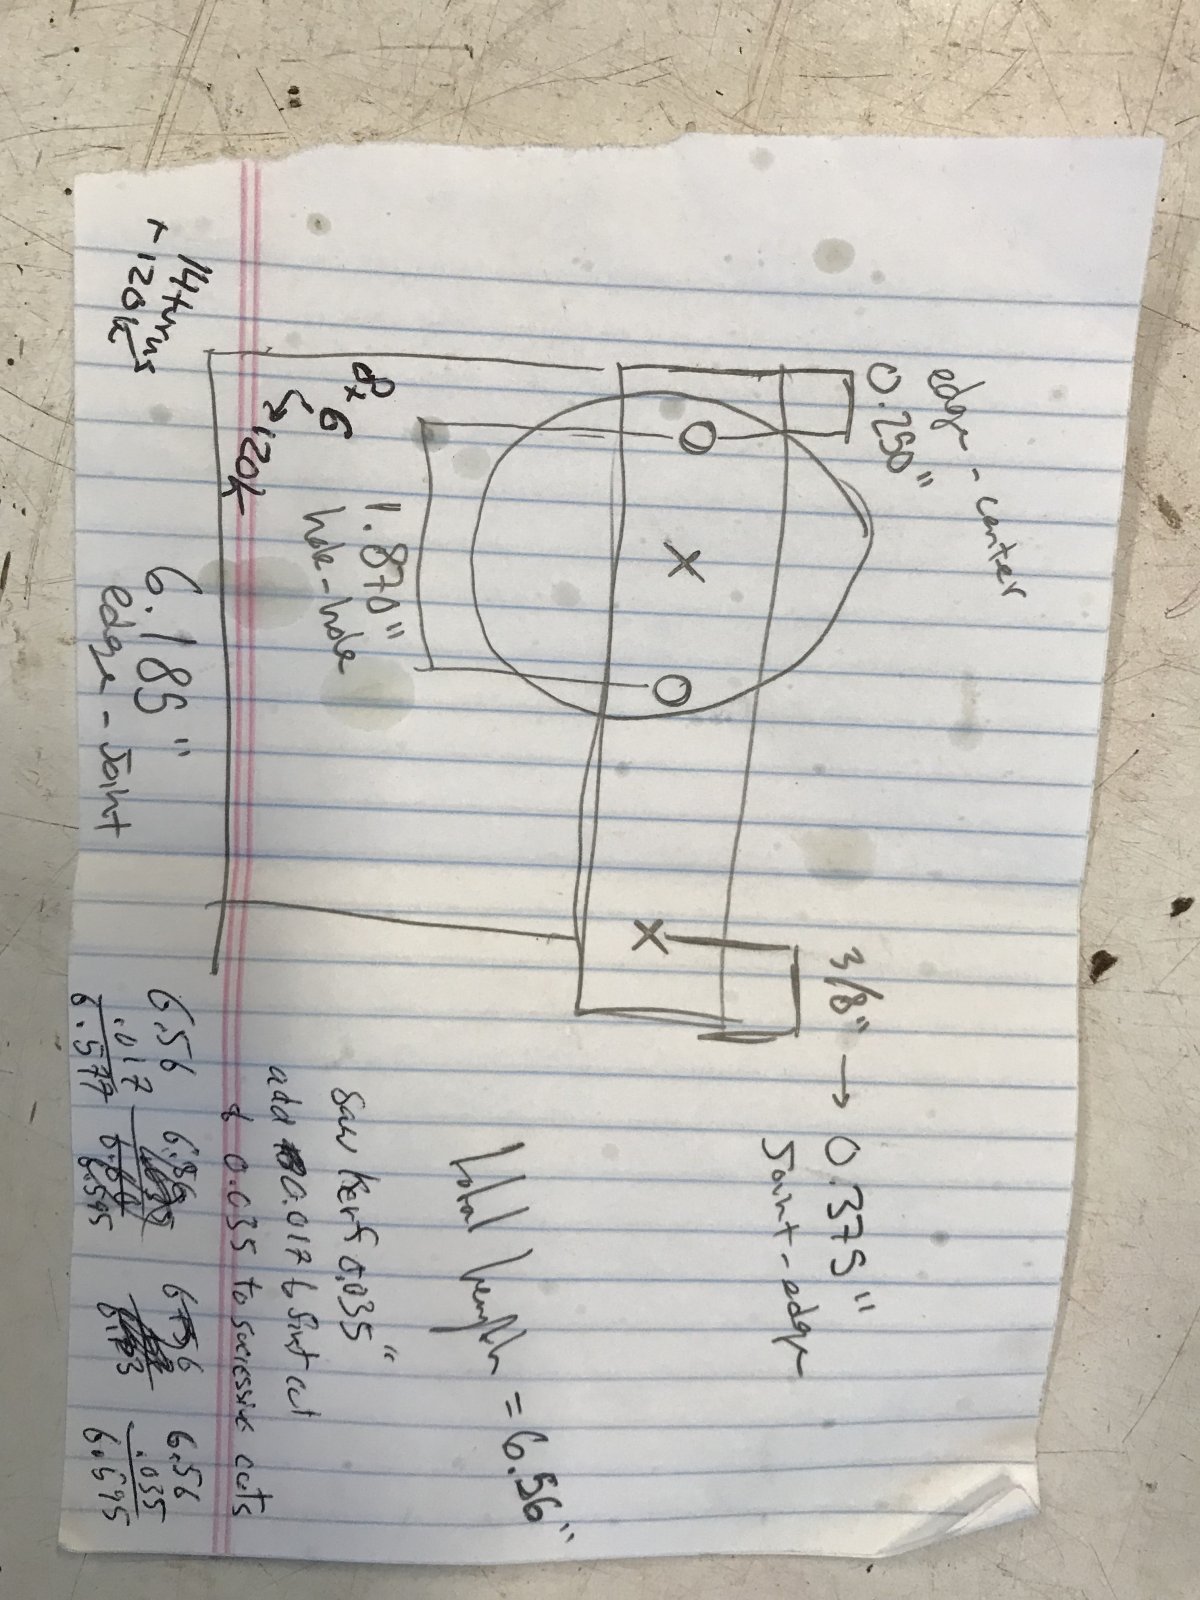 edge - center
0.250"
3/8" → 0.375"
Joint - edge
1.870"
hole - hole
8x
6
120k
14 turns
120k
6.185"
edge - Joint
total length = 6.56"
saw kerf 0.035"
add 0.017 to first cut
& 0.035 to successive cuts
6.56
.017
6.577
6.56
6.595
6.56
6.56
.035
6.595